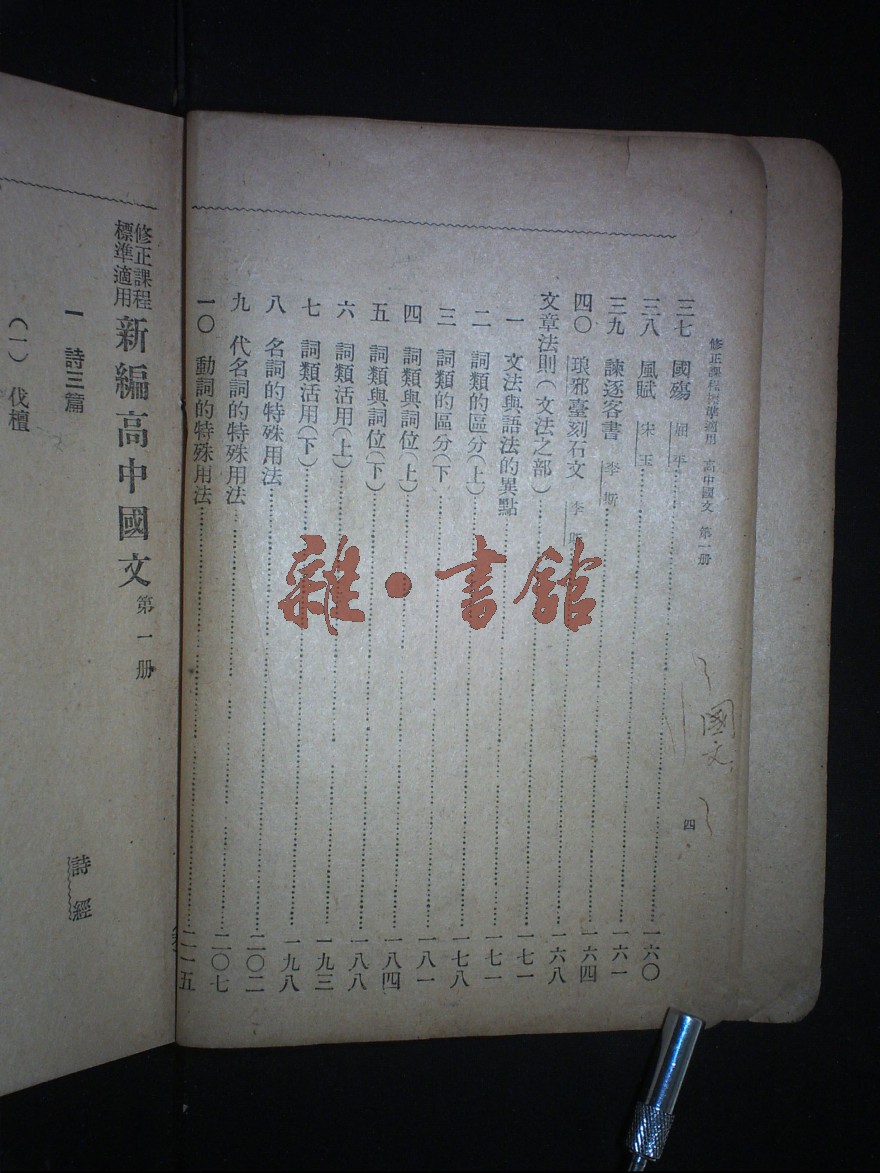 修正課程標準適用 高中國文 第一册
四
國文
三七 國殤 屈平 一六〇
三八 風賦 宋玉 一六一
三九 諫逐客書 李斯 一六四
四〇 琅邪臺刻石文 李斯 一六八
文章法則(文法之部) 一七一
一 文法與語法的異點 一七一
二 詞類的區分(上) 一七八
三 詞類的區分(下 一八一
四 詞類與詞位(上) 一八四
五 詞類與詞位(下) 一八八
六 詞類活用(上) 一九三
七 詞類活用(下) 一九八
八 名詞的特殊用法 二〇二
九 代名詞的特殊用法 二〇七
一〇 動詞的特殊用法 二一五
修正課程標準適用 新編高中國文 第一册
一 詩三篇 詩經
(一) 伐檀
雜·書館